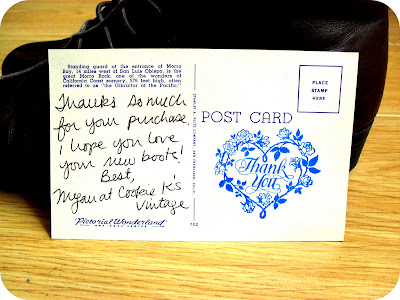 Standing guard at the entrance of Morro
Bay, 14 miles west of San Luis Obispo, is the
great Morro Rock, one of the wonders of
California Coast scenery, 576 feet high, often
referred to as "the Gibraltor of the Pacific."
Thanks so much
for your purchase
I hope you love
your new boots!
Best,
Megan at Cookie K's
Vintage
Pictorial Wonderland
702
POST CARD
PLACE
STAMP
HERE
Thank
You